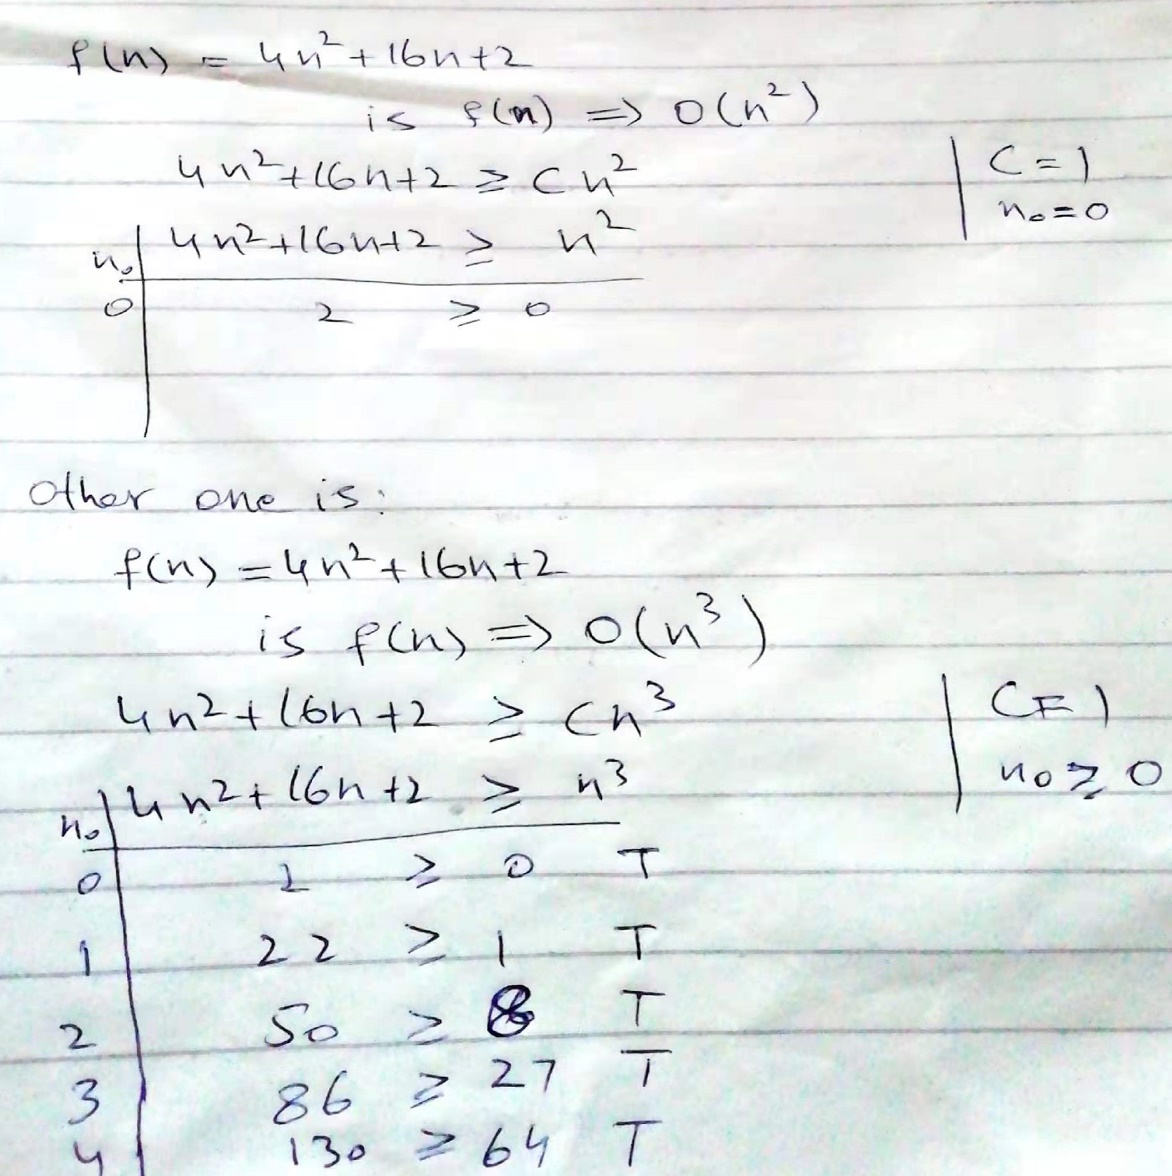 f(n) = 4n²+16n+2
is f(n) => O(n²)
4n²+16n+2 ≥ Cn² | C=1
n₀=0
n₀ | 4n²+16n+2 ≥ n²
0 | 2 ≥ 0
Other one is:
f(n) = 4n²+16n+2
is f(n) => O(n³)
4n²+16n+2 ≥ Cn³ | C=1
n₀ ≥ 0
n₀ | 4n²+16n+2 ≥ n³
0 | 2 ≥ 0 T
1 | 22 ≥ 1 T
2 | 50 ≥ 8 T
3 | 86 ≥ 27 T
4 | 130 ≥ 64 T